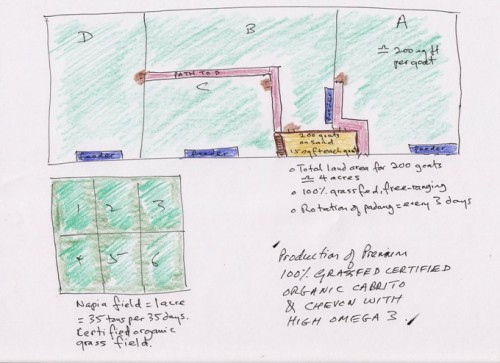 D
B
A
≏ 200 sq ft
per goat
PATH TO D
C
feeder
200 goats
on sand
15 sq ft each goat
feeder
feeder
feeder
o Total land area for 200 goats
≏ 4 acres
o 100% grassfed, free-ranging
o Rotation of padang = every 3 days
1 2 3
4 5 6
Napia field = 1 acre
= 35 tons per 35 days.
Certified organic
grass field.
Production of Premium
100% GRASSFED CERTIFIED
ORGANIC CABRITO
& CHEVON WITH
HIGH OMEGA 3.